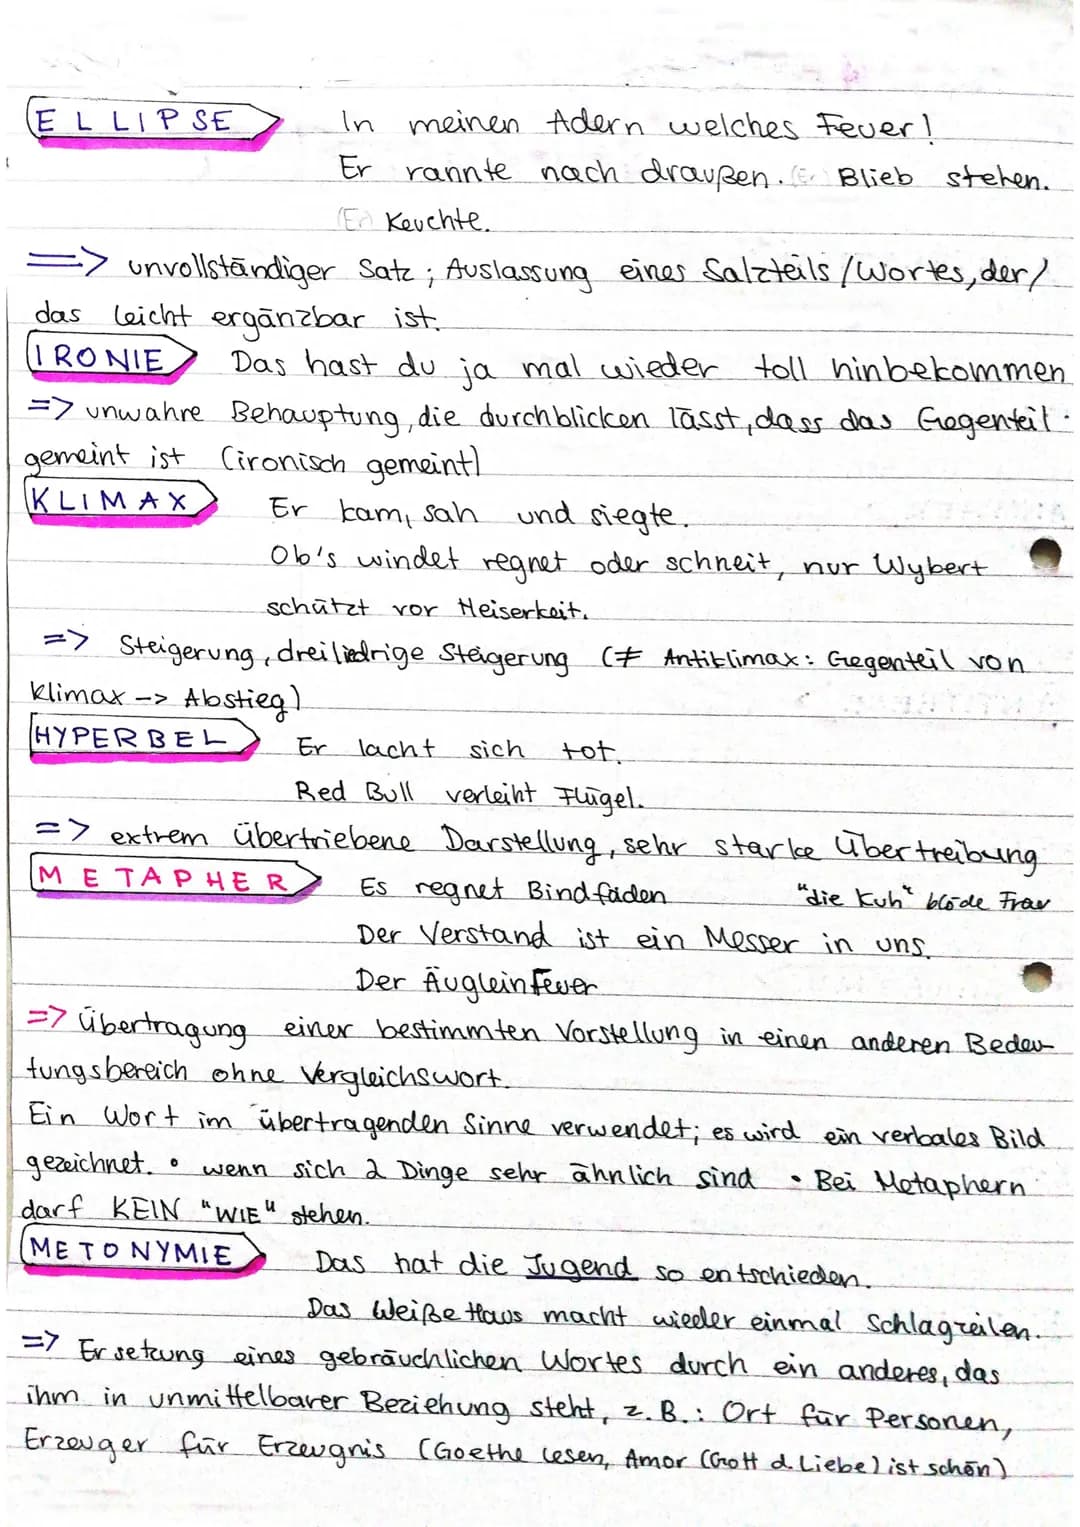 ELLIPSE In meinen Adern welches Feuer!
Er rannte nach draußen. (Er) Blieb stehen.
(Er) Keuchte.
=> unvollständiger Satz; Auslassung eines Salzteils/Wortes, der/
das leicht ergänzbar ist.
IRONIE Das hast du ja mal wieder toll hinbekommen
=> unwahre Behauptung, die durchblicken lässt, dass das Gegenteil
gemeint ist (ironisch gemeint)
KLIMAX Er kam, sah und siegte.
Ob's windet regnet oder schneit, nur Wybert
schützt vor Heiserkeit.
=> Steigerung, dreiliedrige Steigerung (≠ Antiklimax: Gegenteil von
Klimax -> Abstieg)
HYPERBEL Er lacht sich tot.
Red Bull verleiht Flügel.
=> extrem übertriebene Darstellung, sehr starke Übertreibung
METAPHER Es regnet Bindfäden "die Kuh" blöde Frau
Der Verstand ist ein Messer in uns.
Der Äuglein Feuer
=> Übertragung einer bestimmten Vorstellung in einen anderen Bedeu-
tungsbereich ohne Vergleichswort.
Ein Wort im übertragenden Sinne verwendet; es wird ein verbales Bild
gezeichnet. • wenn sich 2 Dinge sehr ähnlich sind • Bei Metaphern
darf KEIN "WIE" stehen.
METONYMIE Das hat die Jugend so entschieden.
Das Weiße Haus macht wieder einmal Schlagzeilen.
=> Ersetzung eines gebräuchlichen Wortes durch ein anderes, das
ihm in unmittelbarer Beziehung steht, z.B.: Ort für Personen,
Erzeuger für Erzeugnis (Goethe lesen, Amor (Gott d. Liebe) ist schön)